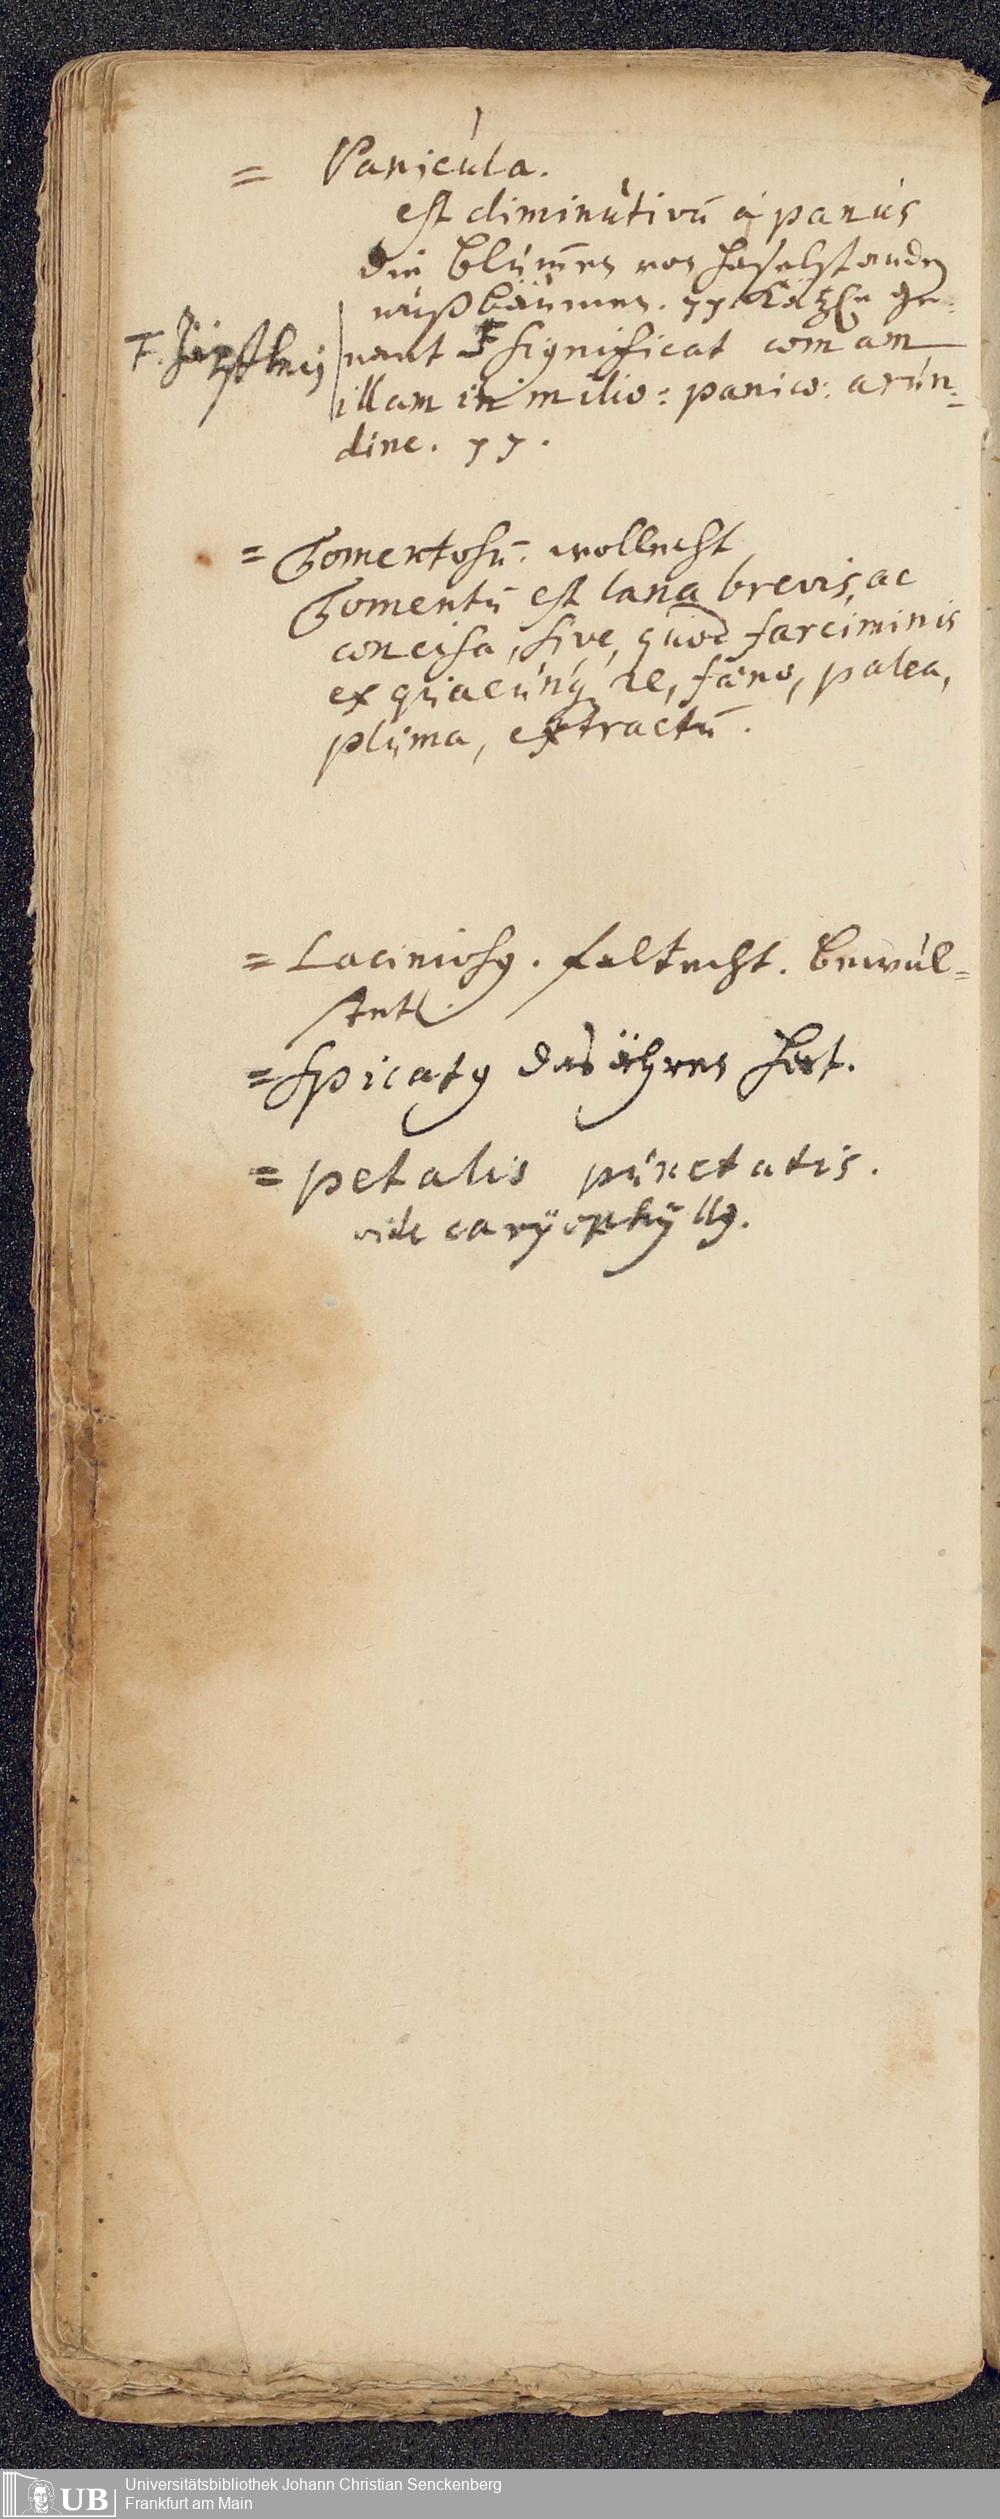 = Panicula.
est diminutivū à panus
die blumen von haselstauden
nußbäumen. ꝛꝛ. Kätzle ge=
nant Ŧ significat comam
Ŧ.
illam in milio: panico: arun=
dine. ꝛꝛ.
= Tomentosū. wollecht
Tomentū est lana brevis, ac
concisa, sive, quod farciminis
ex quacunq re, fæno, palea,
pluma, extractū.
= Laciniosꝰ. faltecht.
= Spicatꝰ das ähren hat.
= petalis punctatis.
vide caryophyllꝰ.
UB Universitätsbibliothek Johann Christian Senckenberg
Frankfurt am Main